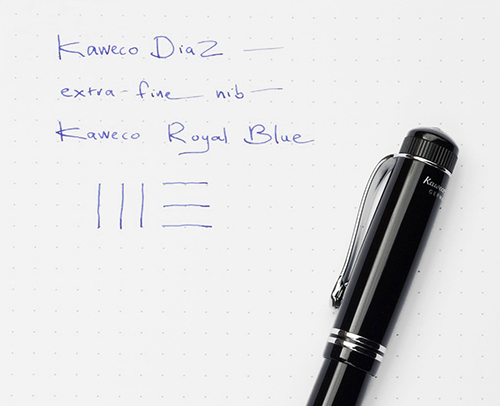 Kaweco Dia2 —
extra-fine nib —
Kaweco Royal Blue
Kaweco
GERM